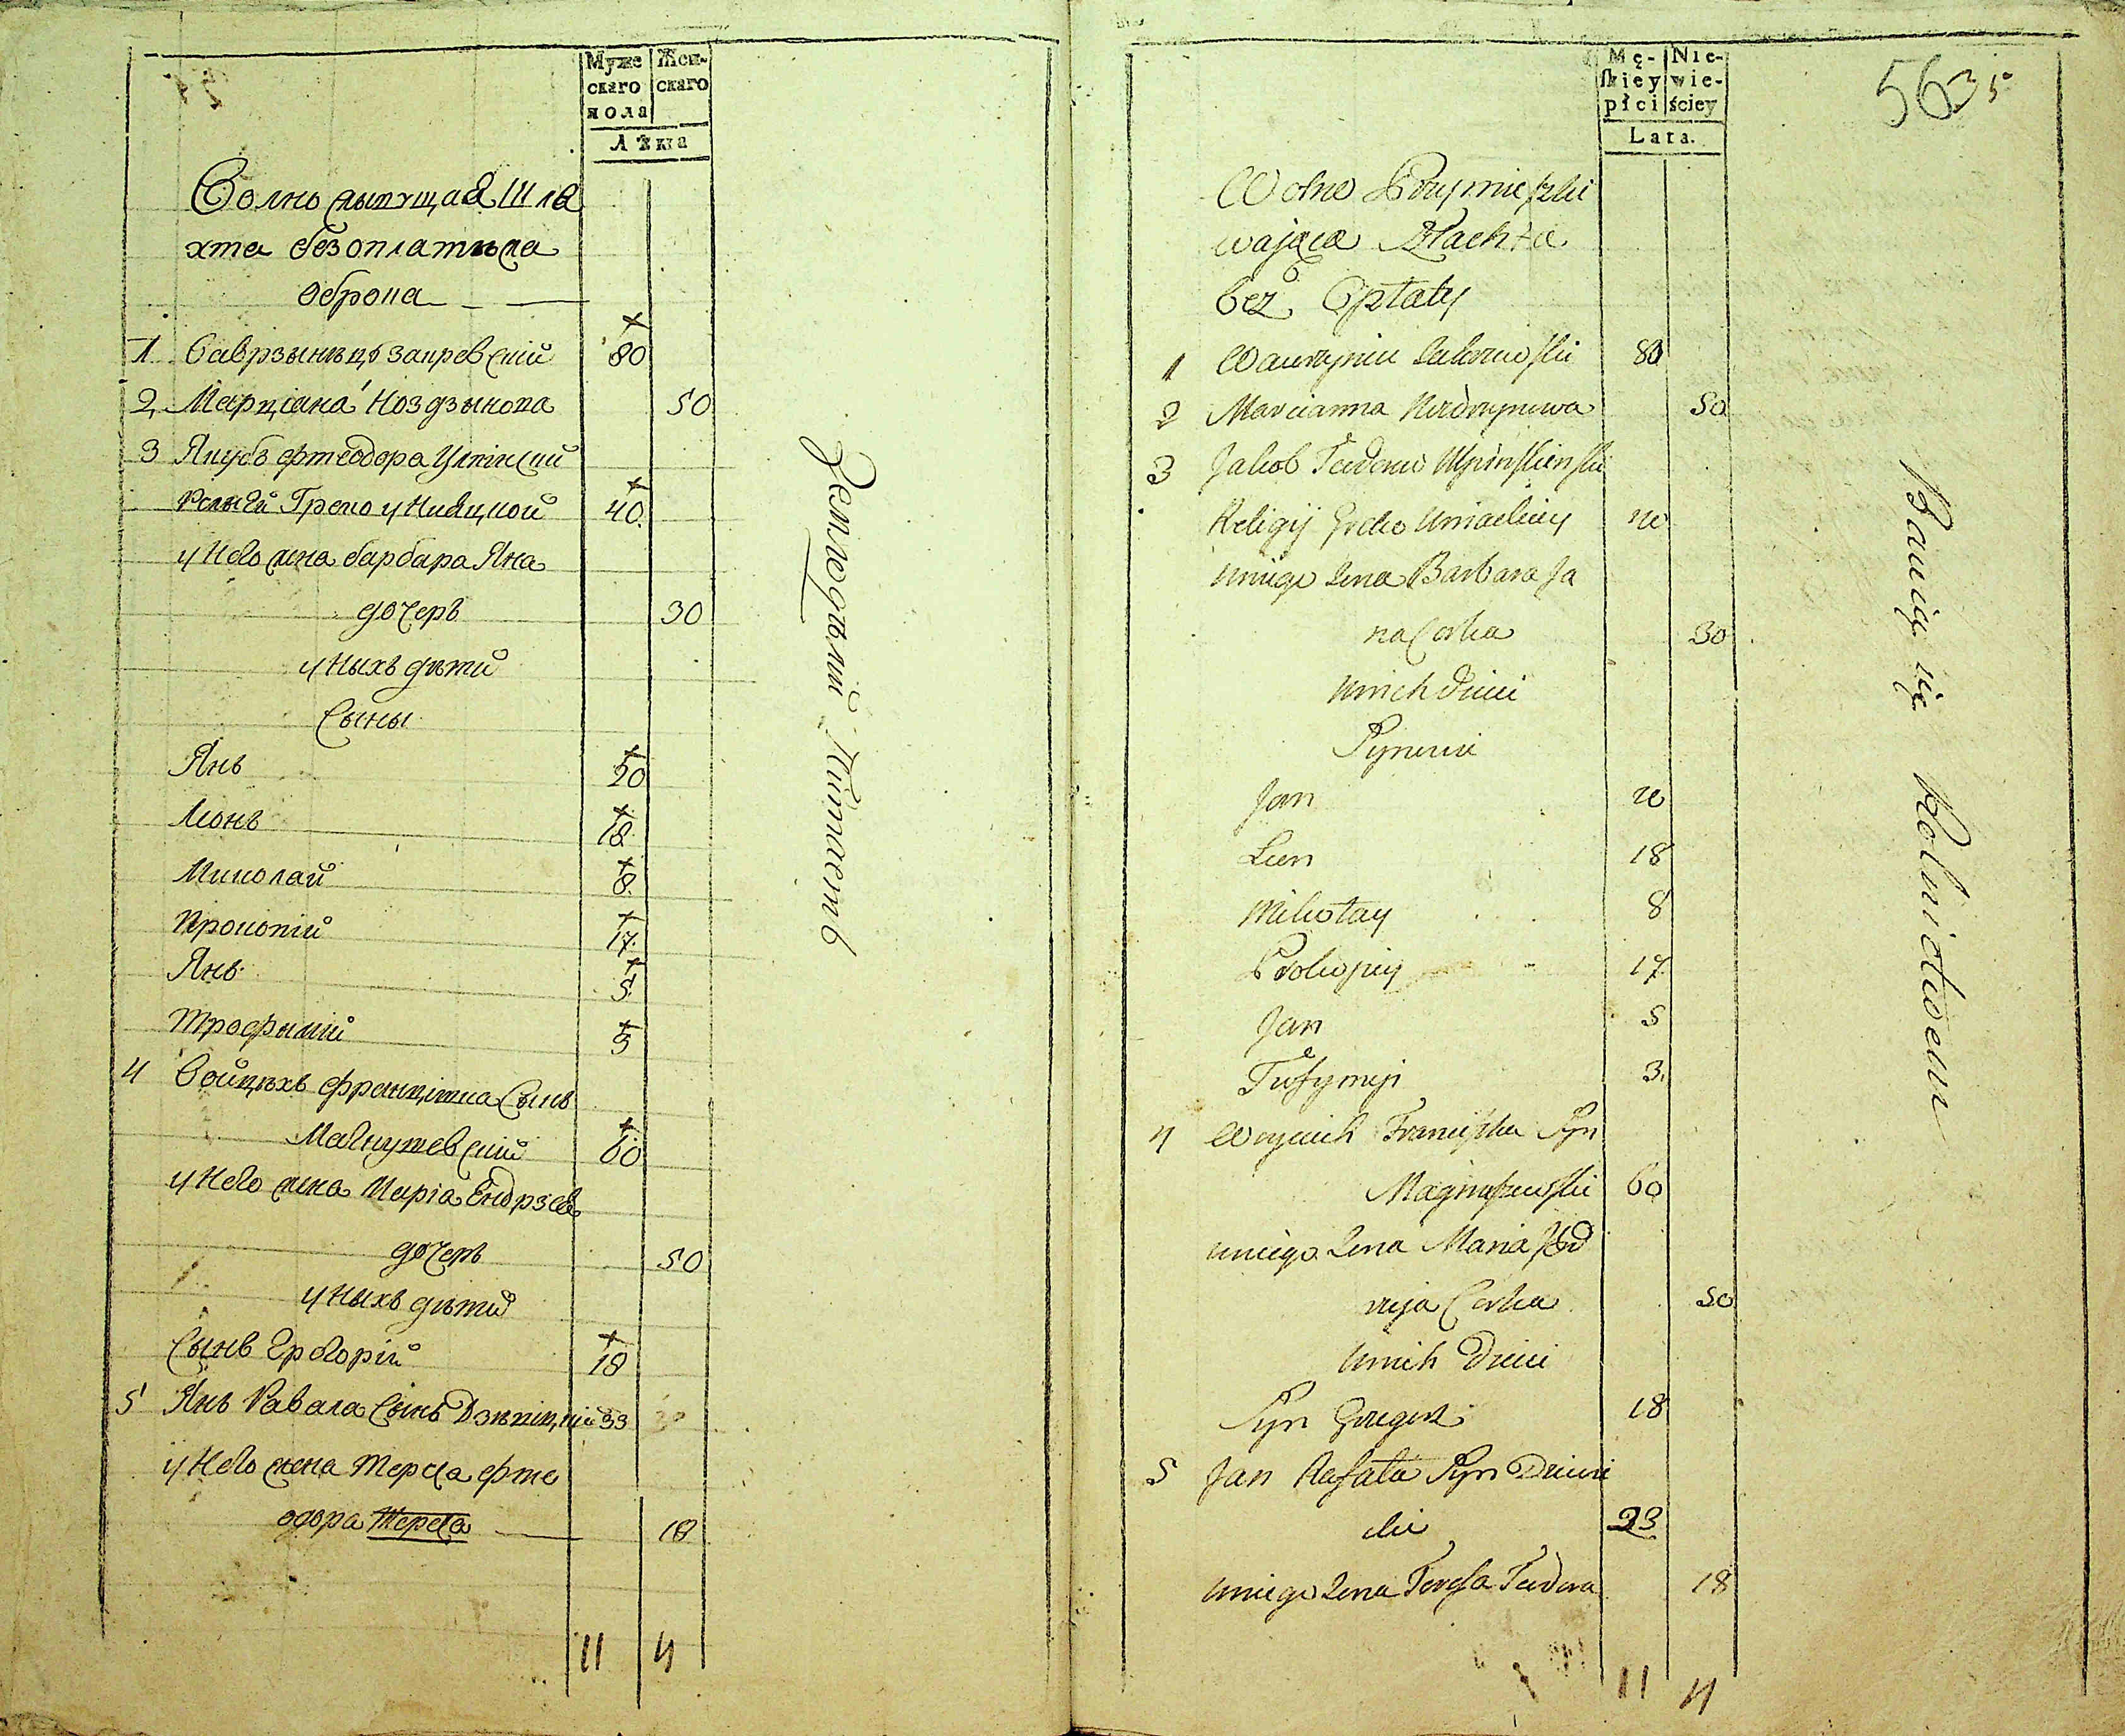 Муже
скаго
пола
Жен-
скаго
Лѣта
Волно мытущая Шля
хта безоплатежа
оброка
1 Ваврзынецъ Закревскій 80
2 Марціана Ноздзынова 50
3 Якубъ Фтеодора
Релыгіи Греко Унияцкой 40
у Него жена барбара Яна
дочеръ 30
у Ныхъ дѣти
Сыны
Янъ 20
Леонъ 18
Миколай 8
Прокопій 17
Янъ 5
Трофымій 3
4 Войцѣхъ Францишка Сынъ
Магнушевскій 60
у Него жена Марiа Ендрзея
дочеръ 50
у Ныхъ дѣти
Сынъ Грегорій 18
5 Янъ Рафала Сынъ 33
у Него жена Тереса Фте
одора Тереса 18
11 4
Земледѣлій Питаетъ
Mę-
skiey
płci
Nie-
wie-
ściey
Lata.
563 5
Wolno Pomieszki
wająca Szlachta
bez Opłaty
1 Wawrzyniec Zakrzewski 80
2 Marcianna 50
3 Jakob Teodora
Religij Greko Uniackiey 40
u niego Zona Barbara Ja
na Corka 30
u nich dzieci
Synowie
Jan 20
Leon 18
Mikołay 8
Prokopiy 17
Jan 5
Trofymij 3.
4 Woyciech Franciszka Syn
Magnuszewski 60
u niego Zona Maria Jęd
rzeja Corka 50
u nich Dzieci
Syn Grzegorz 18
5 Jan Rafała Syn
cki 23
u niego Zona Teresa Teodora 18
11 4
Bawią się Rolnictwem